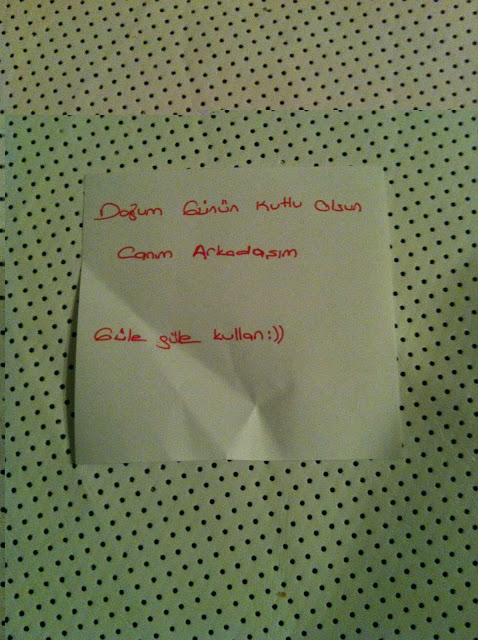 Doğum Günün Kutlu Olsun
Canım Arkadaşım
Güle güle kullan:))